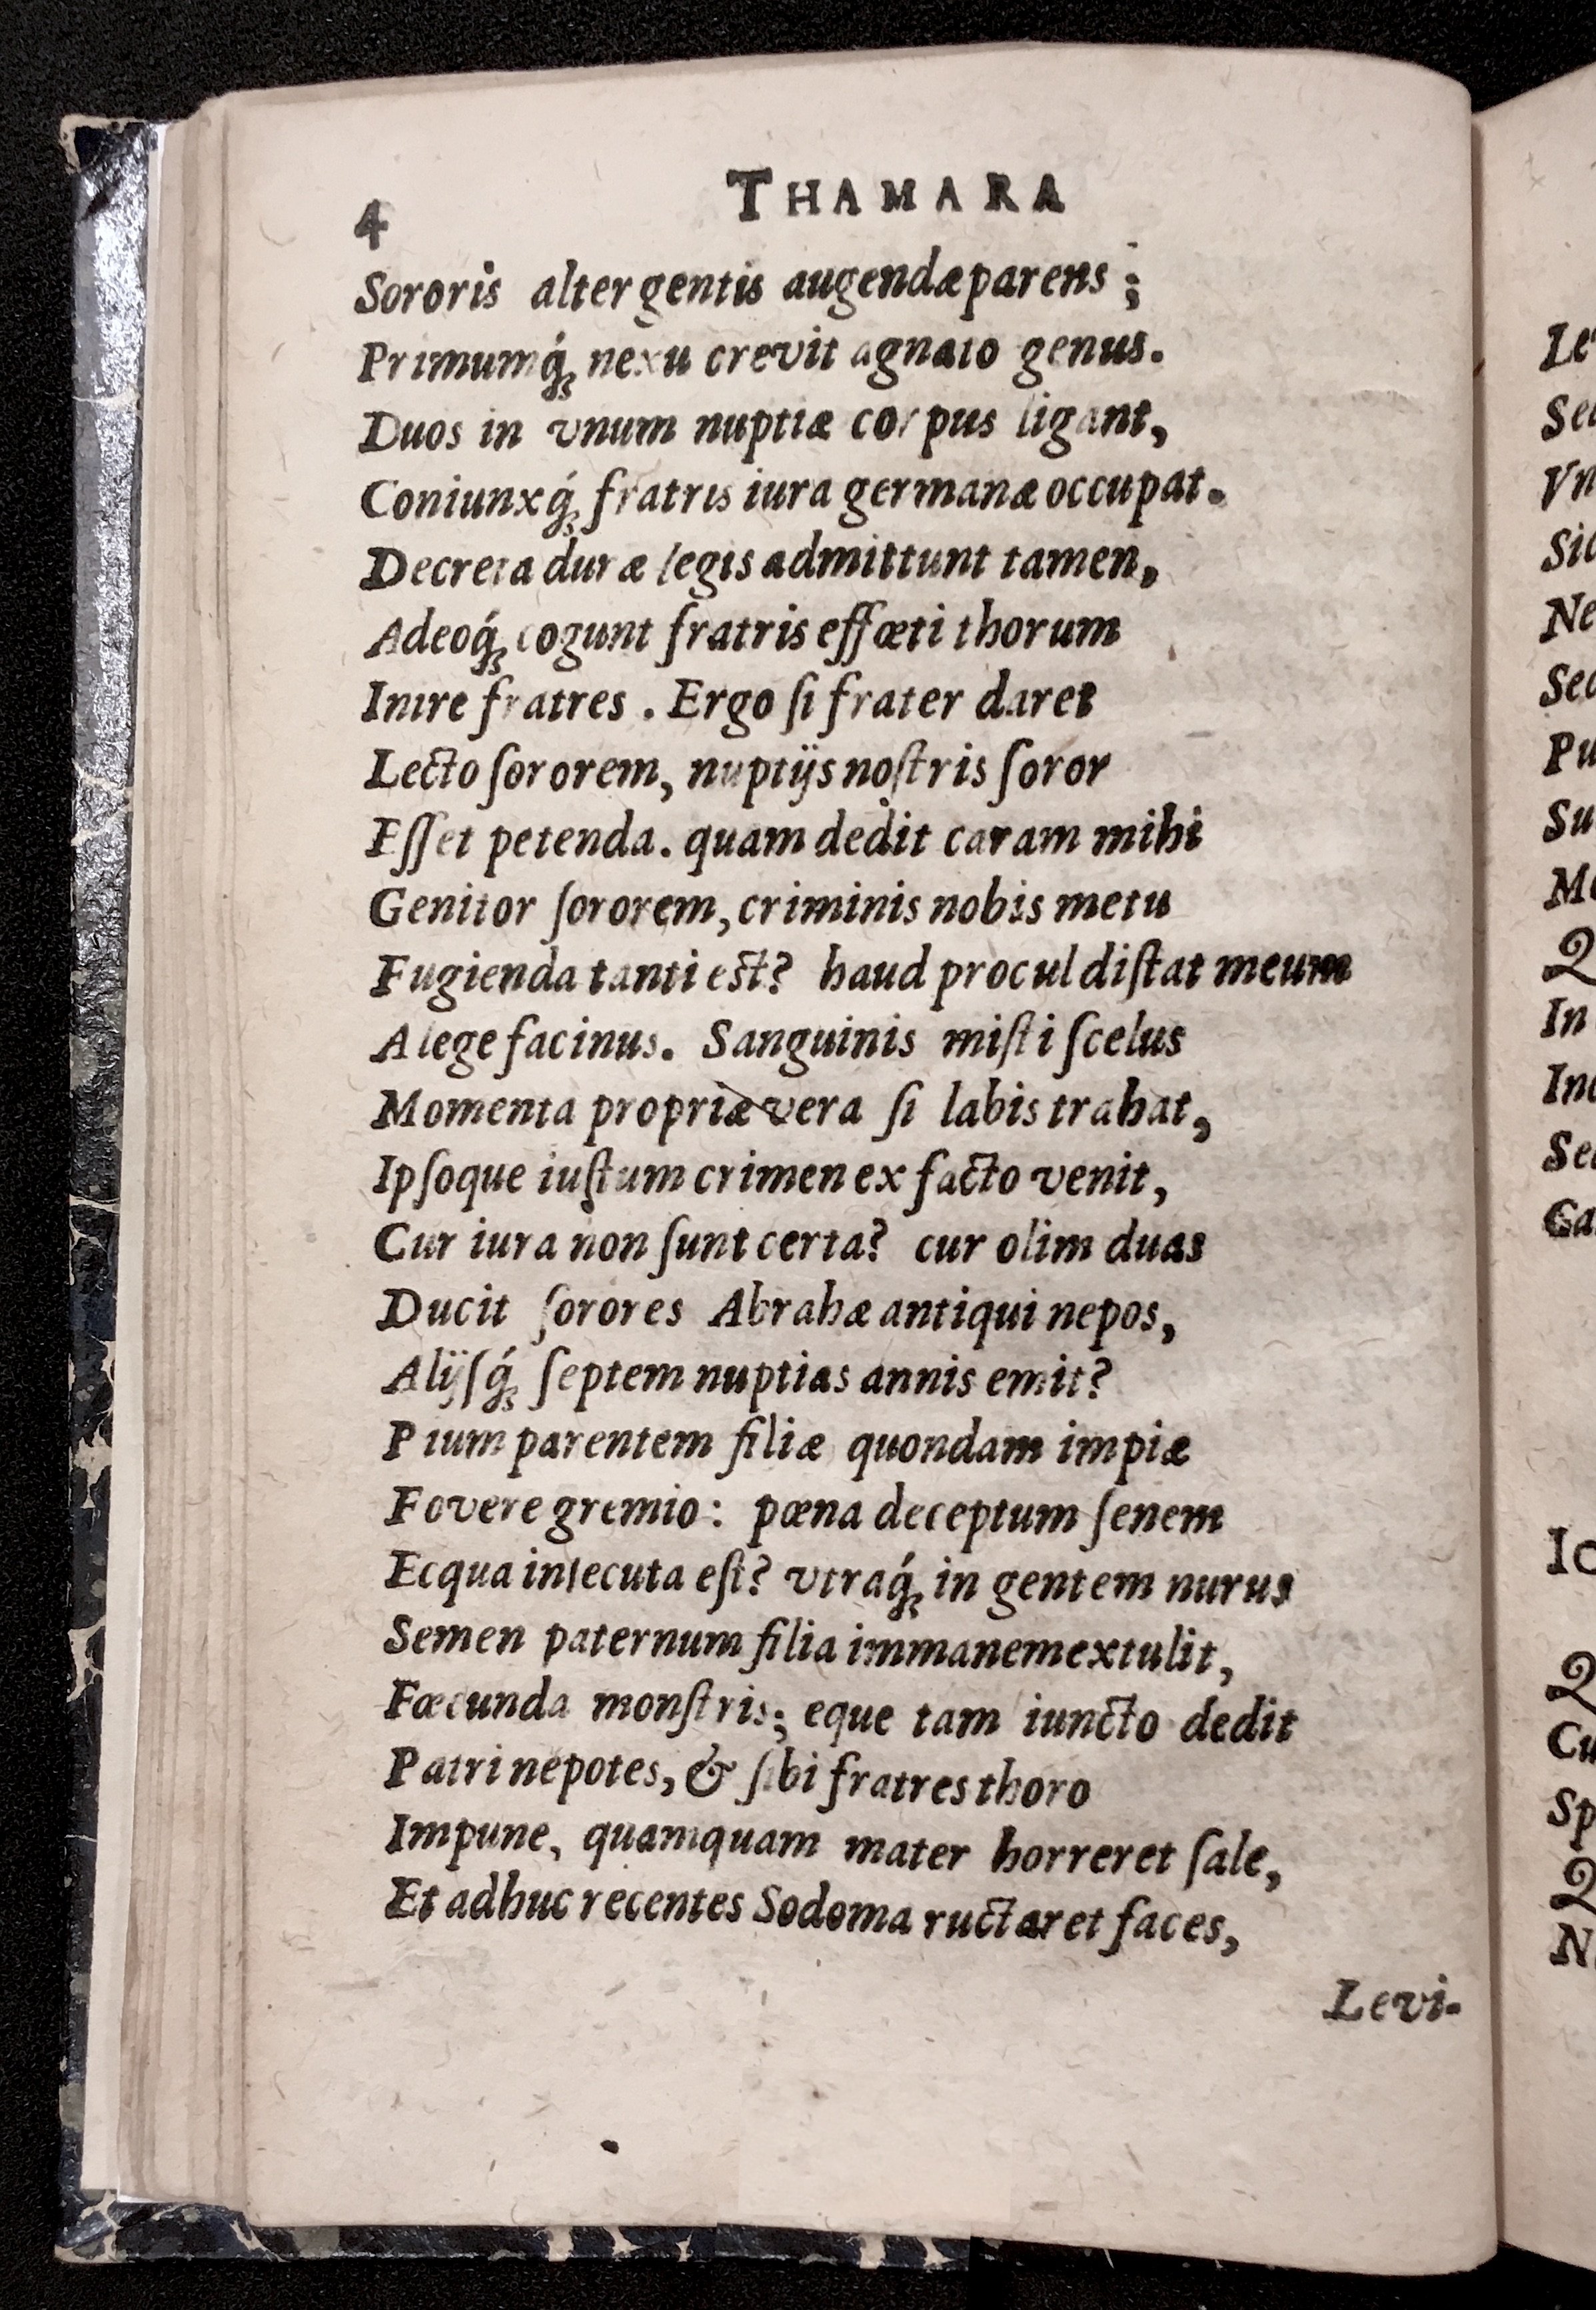 4
THAMARA
Sororis alter gentis augendæ parens;
Primumq́ꝫ nexu crevit agnato genus.
Duos in vnum nuptiæ corpus ligant,
Coniunxq́ꝫ fratris iura germanæ occupat.
Decreta duræ legis admittunt tamen,
Adeoq́ꝫ cogunt fratris effœti thorum
Inire fratres. Ergo ſi frater daret
Lecto ſororem, nuptijs noſtris ſoror
Eſſet petenda. quam dedit caram mihi
Genitor ſororem, criminis nobis metu
Fugienda tanti eſt? haud procul diſtat meum
A lege facinus. Sanguinis miſti ſcelus
Momenta propriæ vera ſi labis trahat,
Ipſoque iuſtum crimen ex facto venit,
Cur iura non ſunt certa? cur olim duas
Ducit ſorores Abrahæ antiqui nepos,
Alijſq́ꝫ ſeptem nuptias annis emit?
Pium parentem filiæ quondam impiæ
Fovere gremio: pœna deceptum ſenem
Ecqua inſecuta eſt? vtraq́ꝫ in gentem nurus
Semen paternum filia immanem extulit,
Fœcunda monſtris; eque tam iuncto dedit
Patri nepotes, & ſibi fratres thoro
Impune, quamquam mater horreret ſale,
Et adhuc recentes Sodoma ructaret faces,
Levi-
Le
Se
Vn
Sic
Ne
Sed
Pu
Su
Me
Q
In
In
Se
Ga
Io
Q
Cu
Sp
Q
N